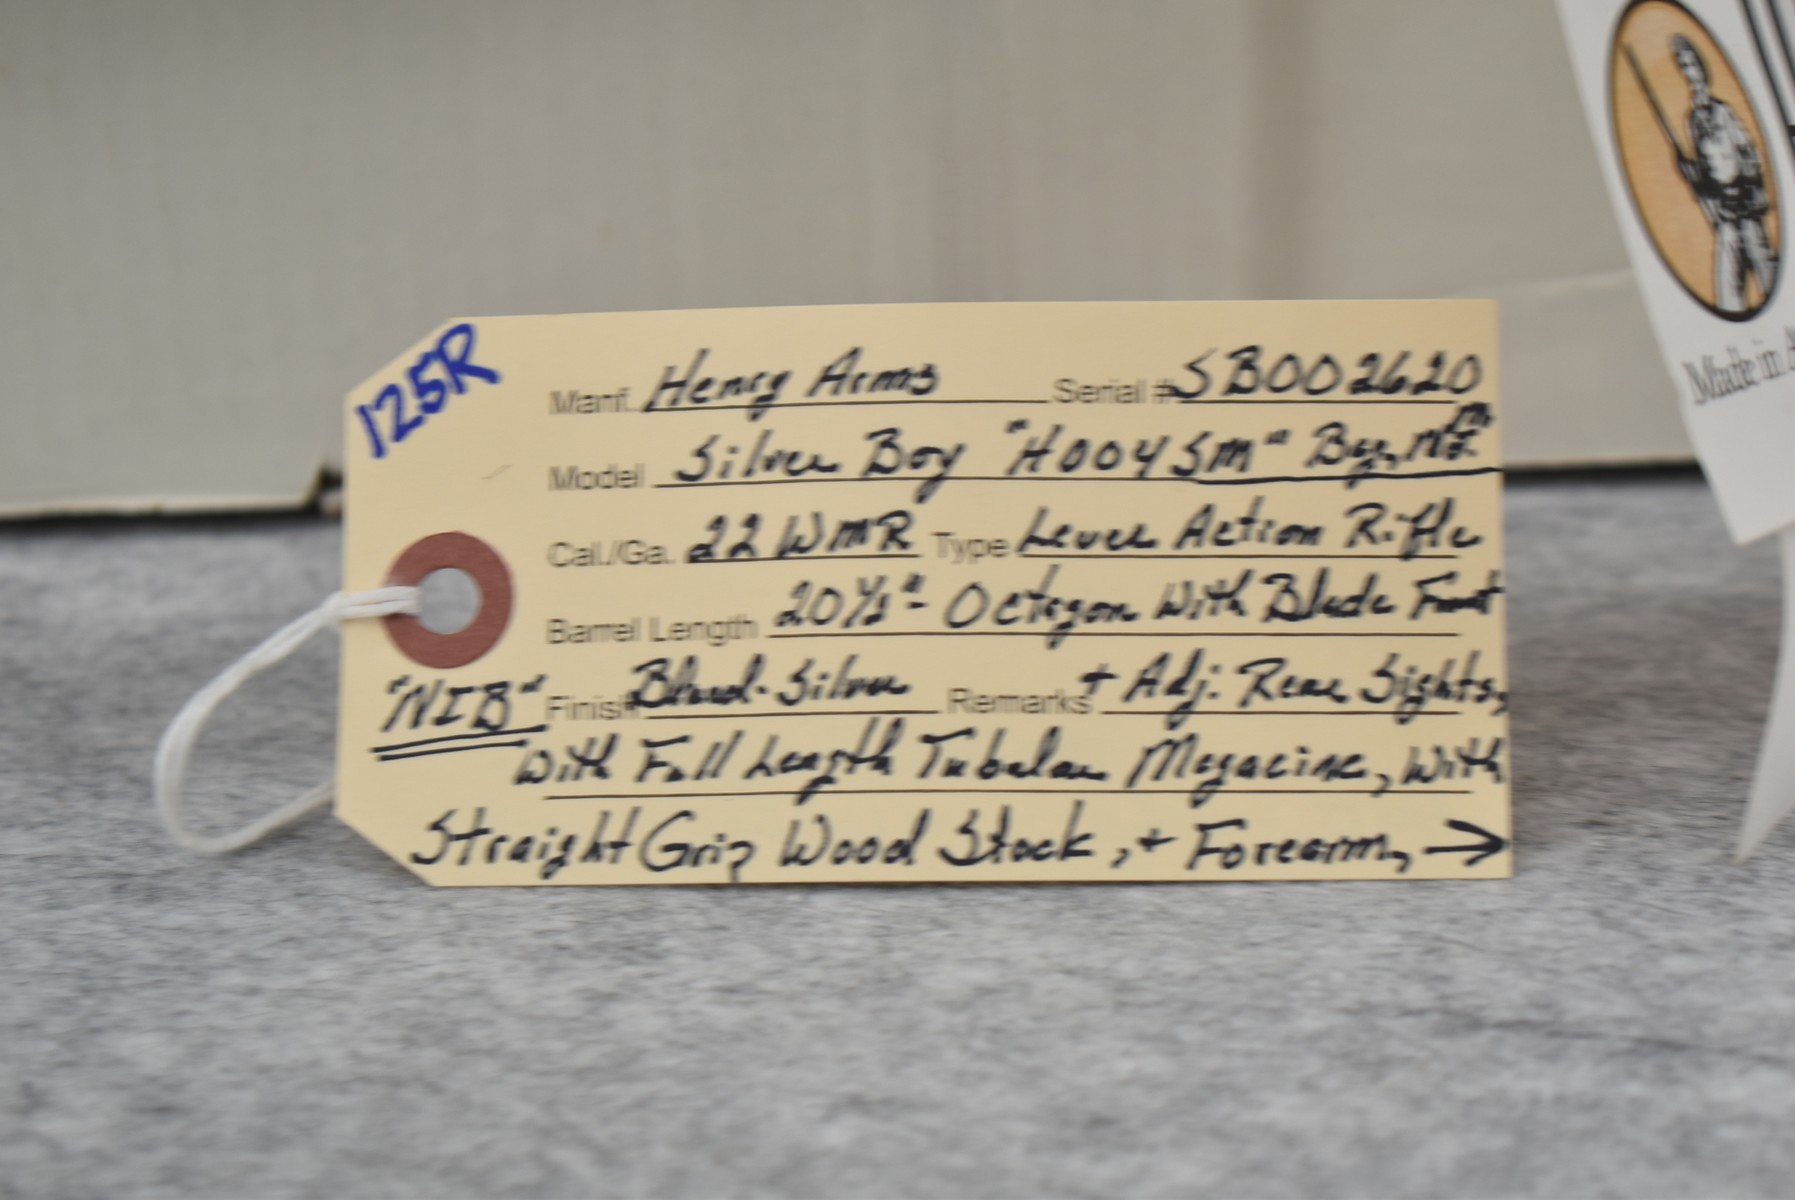 125R
Manf. Henry Arms Serial # SB002620
Model Silver Boy "H004SM"
Cal./Ga. 22 WMR Type Lever Action Rifle
Barrel Length 20½"- Octagon With Blade Front
"NIB" Finish Blued-Silver Remarks + Adj. Rear Sights,
With Full Length Tubular Magazine, With
Straight Grip Wood Stock, + Forearm, →
Made in